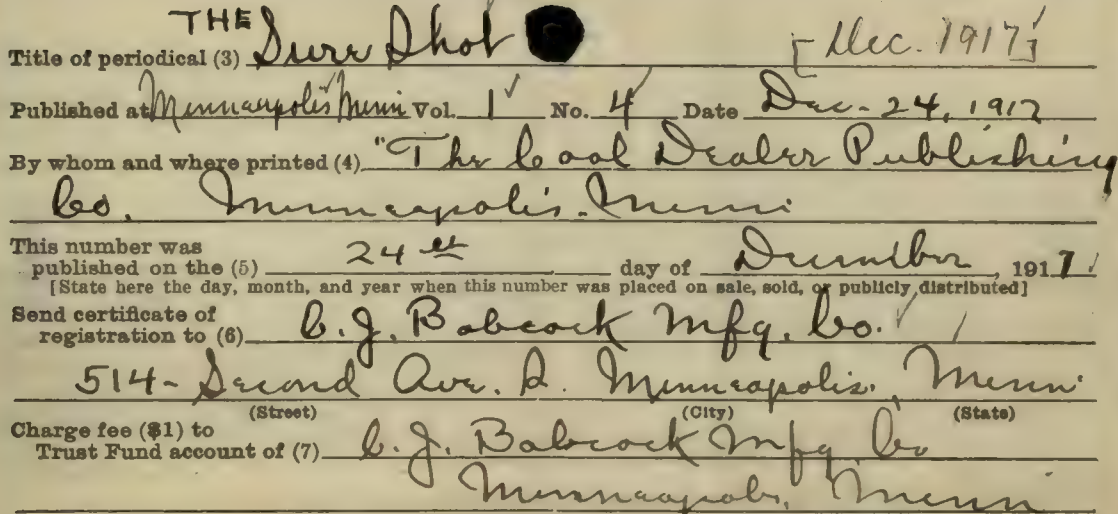 THE
Title of periodical (3) Sure Shot [Dec. 1917]
Published at Minneapolis Minn Vol. 1 No. 4 Date Dec. 24, 1917
By whom and where printed (4) "The Coal Dealer Publishing
Co. Minneapolis. Minn
This number was
published on the (5) 24th day of December, 1917
[State here the day, month, and year when this number was placed on sale, sold, or publicly distributed]
Send certificate of
registration to (6) C. J. Babcock Mfg. Co.
514- Second Ave. S. Minneapolis, Minn.
(Street) (City) (State)
Charge fee ($1) to
Trust Fund account of (7) C. J. Babcock Mfg Co
Minneapolis, Minn